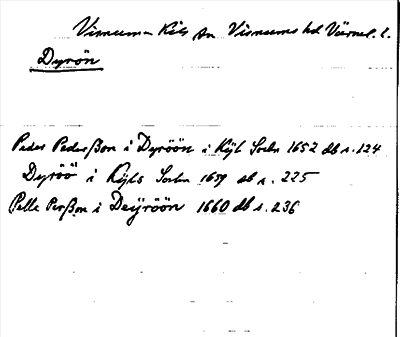 Visnum-Kils sn Visnums hd Värml. l.
Dyrön
Peder Pederßon i Dyröön i Kijl Sochn 1652 db s. 124
Dyröö i Kijls Sochn 1659 db s. 225
Pelle Perßon i Deijröön 1660 db s. 236